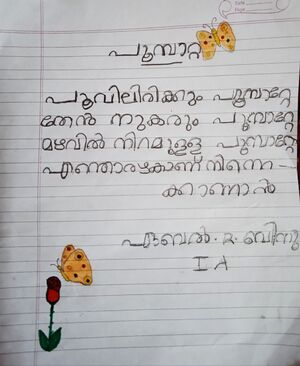 പൂമ്പാറ്റ
പൂവിലിരിക്കും പൂമ്പാറ്റേ
തേൻ നുകരും പൂമ്പാറ്റേ
മഴവിൽ നിറമുള്ള പൂമ്പാറ്റേ
എന്തൊരഴകാണ് നിന്നെ
ക്കാണാൻ
ഏബൽ . R . ബിനു
I A